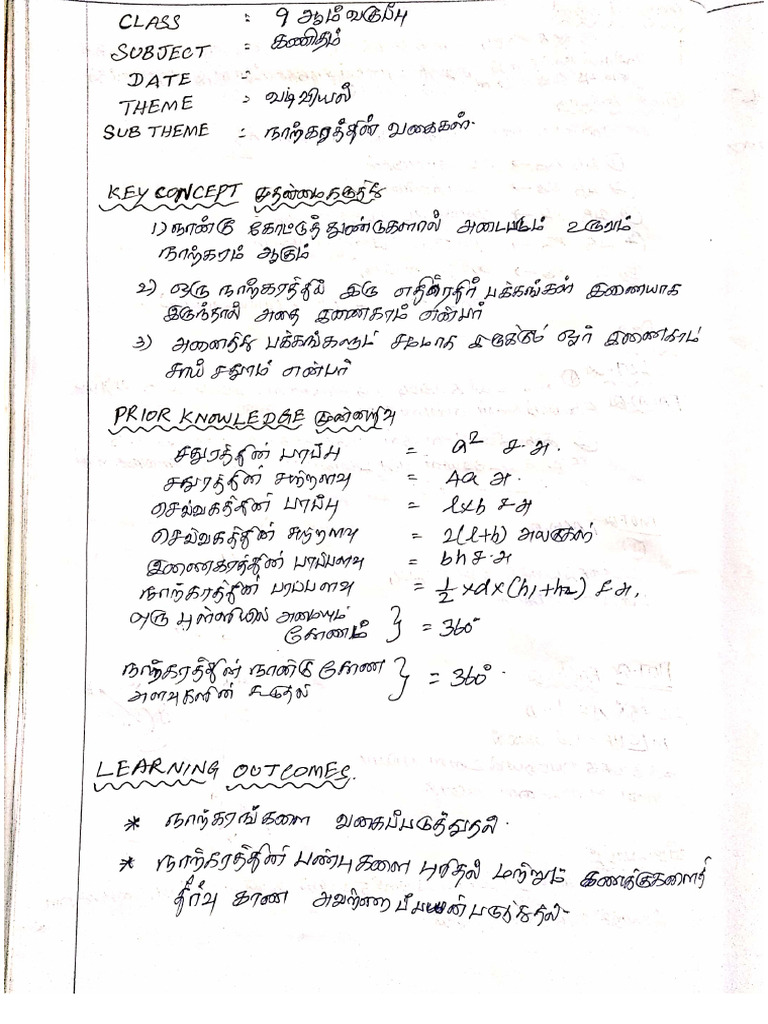 CLASS : 9 ஆம் வகுப்பு
SUBJECT : கணிதம்
DATE :
THEME : வடிவியல்
SUB THEME : நாற்கரத்தின் வகைகள்.
KEY CONCEPT முதன்மைகருத்து
1) நான்கு கோட்டுத்துண்டுகளால் அடைபடும் உருவம்
நாற்கரம் ஆகும்
2) ஒரு நாற்கரத்தில் இரு எதிரெதிர் பக்கங்கள் இணையாக
இருந்தால் அதை இணைகரம் என்பர்
3) அனைத்து பக்கங்களும் சமமாக இருக்கும் ஓர் இணைகரம்
சாய் சதுரம் என்பர்
PRIOR KNOWLEDGE முன்னறிவு
சதுரத்தின் பரப்பு = a² ச.அ.
சதுரத்தின் சுற்றளவு = 4a அ.
செவ்வகத்தின் பரப்பு = l×b ச.அ
செவ்வகத்தின் சுற்றளவு = 2(l+b) அலகுகள்
இணைகரத்தின் பரப்பளவு = bh ச.அ
நாற்கரத்தின் பரப்பளவு = 1/2 ×d×(h₁+h₂) ச.அ.
ஒரு புள்ளியில் அமையும்
கோணம் } = 360°
நாற்கரத்தின் நான்கு கோண
அளவுகளின் கூடுதல் } = 360°.
LEARNING OUTCOMES.
* நாற்கரங்களை வகைப்படுத்துதல்.
* நாற்கரத்தின் பண்புகளை புரிதல் மற்றும் கணக்குகளைத்
தீர்வு காண அவற்றை பயன்படுத்துதல்.